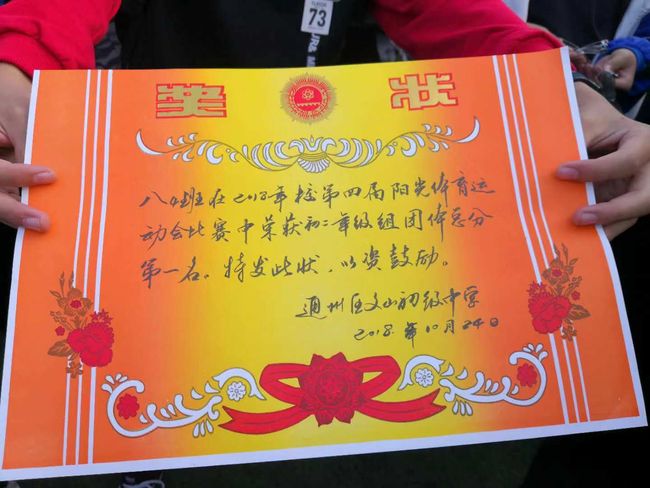 73
奖状
八(4)班在2018年校第四届阳光体育运
动会比赛中荣获初二年级组团体总分
第一名。特发此状，以资鼓励。
通州区文山初级中学
2018.年10月24日